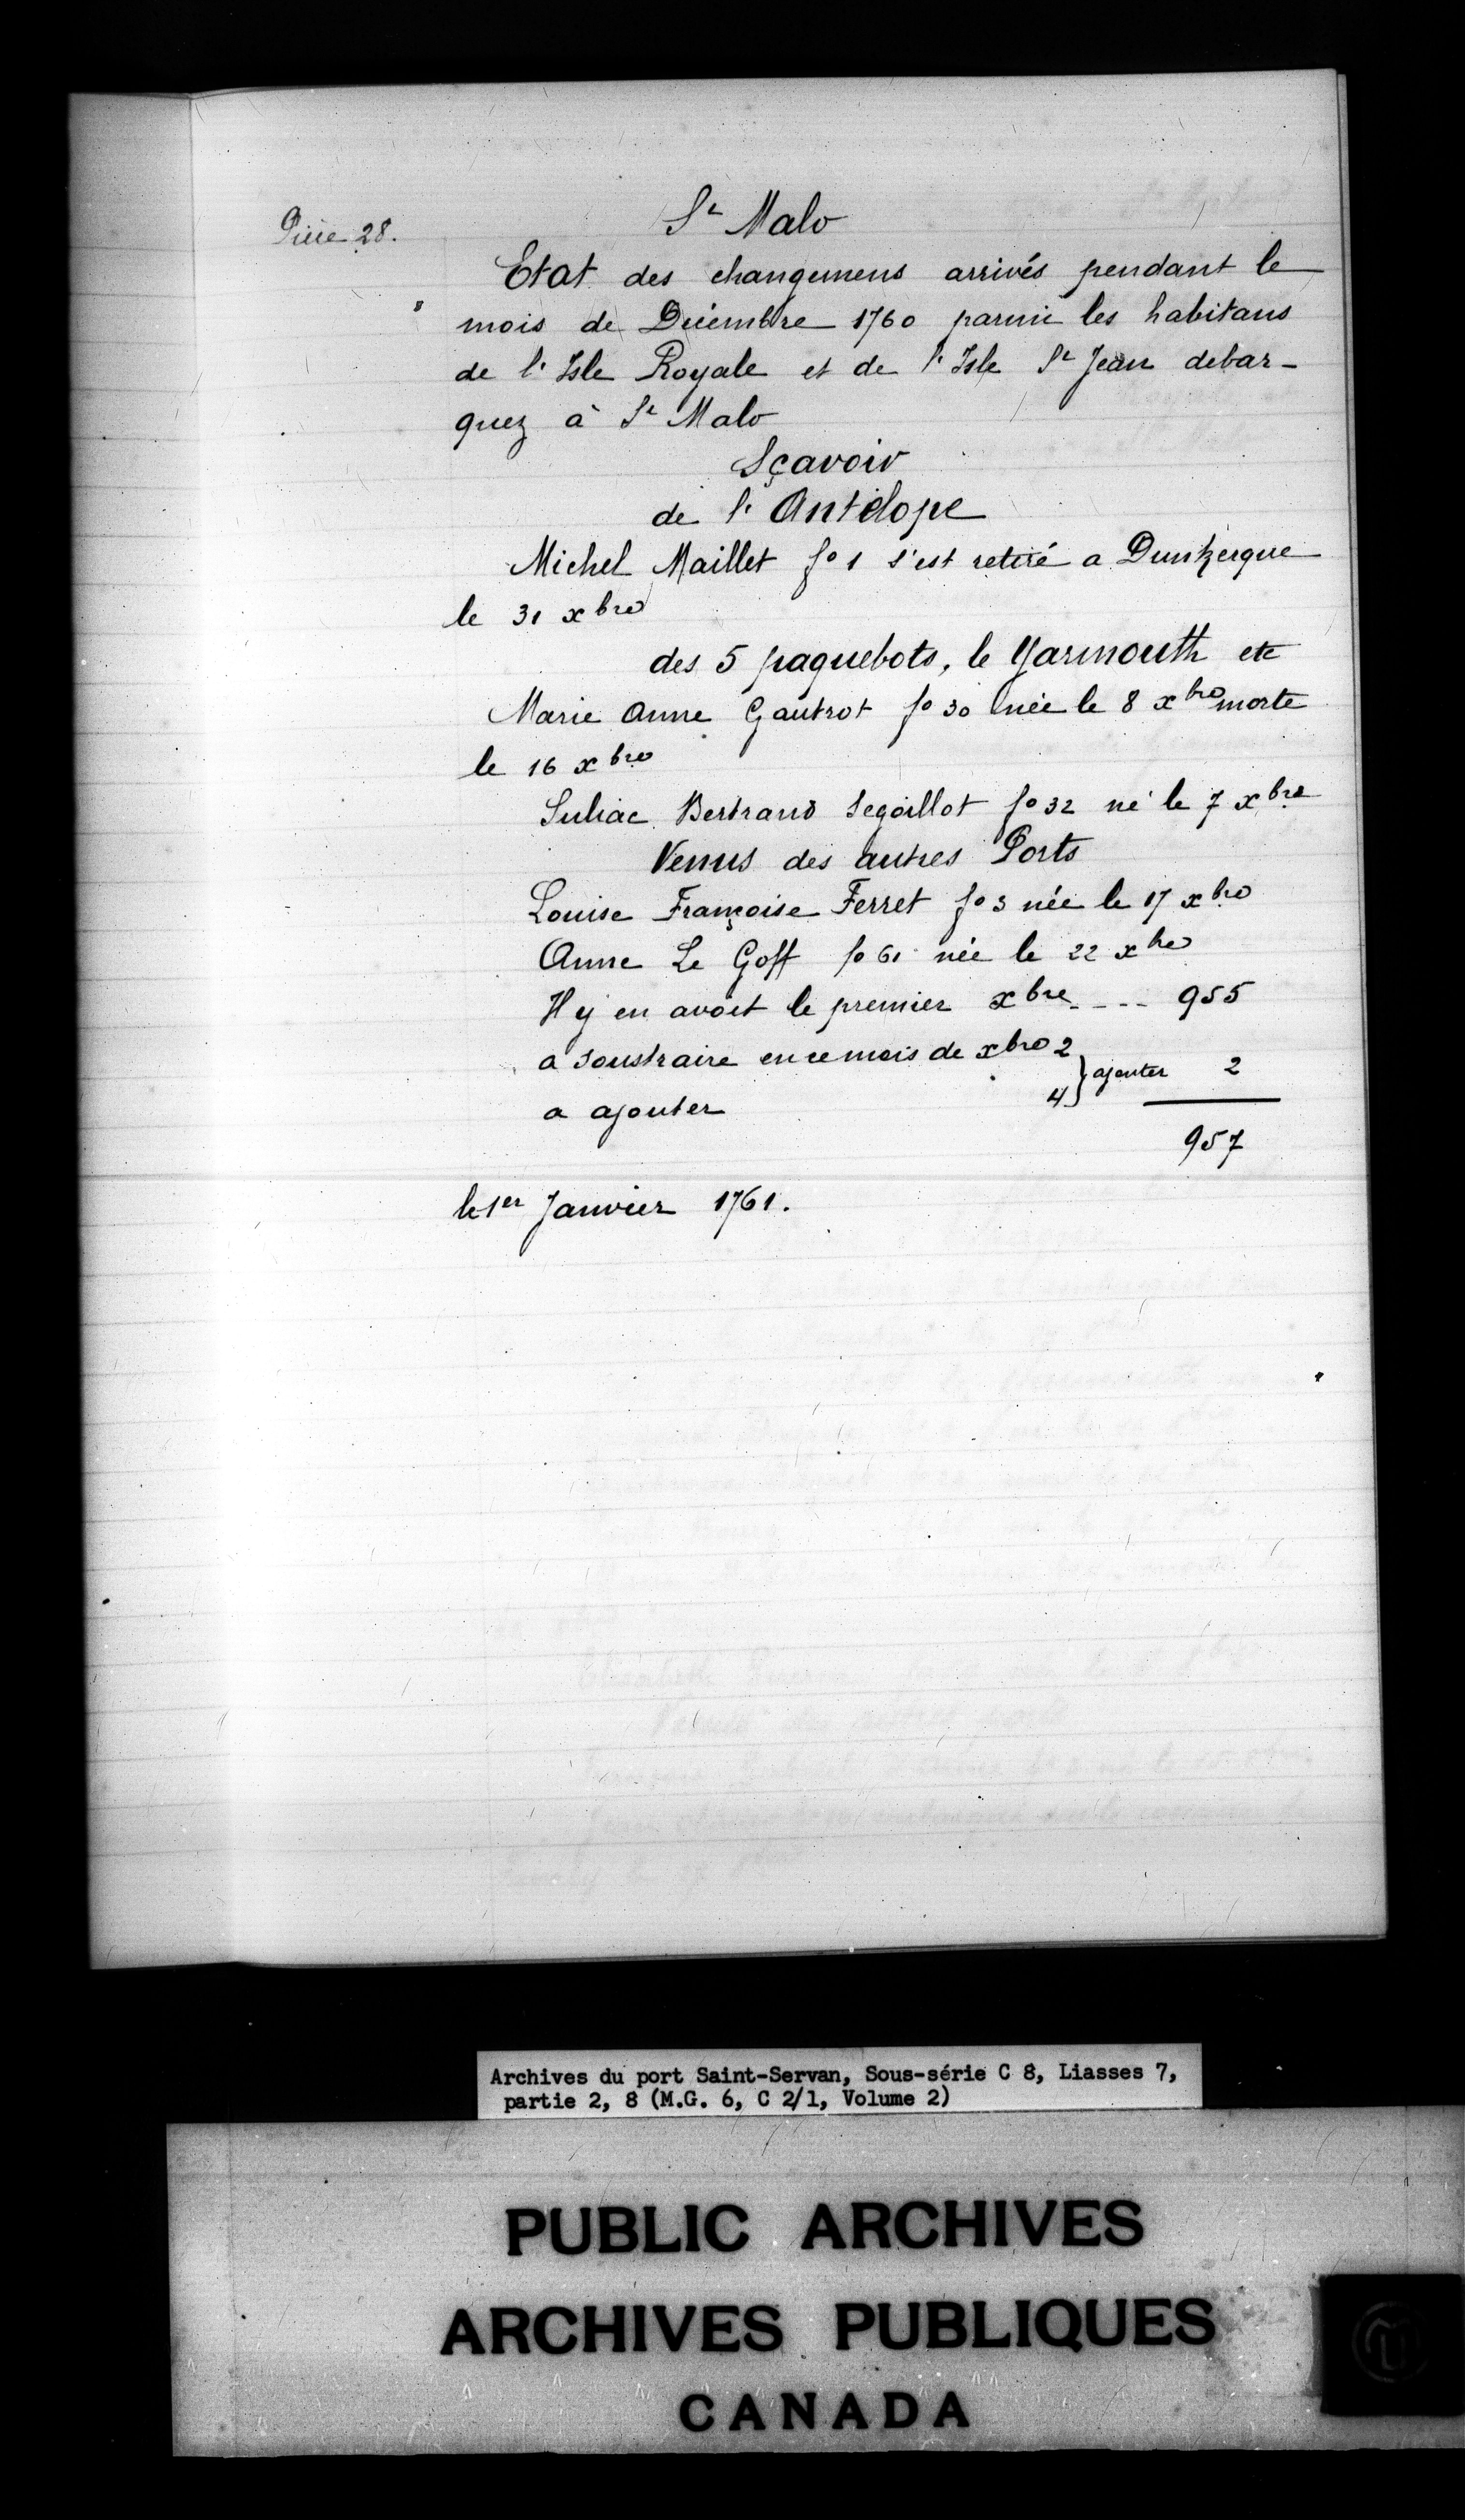 Pièce 28.
St Malo
Etat des changemens arrivés pendant le
mois de Décembre 1760 parmi les habitans
de l'Isle Royale et de l'Isle St Jean debar-
quez à St Malo
Sçavoir
de l'Antélope
Michel Maillet fo 1 s'est retiré a Dunkerque
le 31 xbre
des 5 paquebots, le Yarmouth etc
Marie Anne Gautrot fo 30 née le 8 xbre morte
le 16 xbre
Suliac Bertrand Segoillot fo 32 né le 7 xbre
Venus des autres Ports
Louise Françoise Ferret fo 3 née le 17 xbre
Anne Le Goff fo 61 née le 22 xbre
Il y en avoit le premier xbre ---- 955
a soustraire en ce mois de xbre 2
} ajouter 2
a ajouter 4
957
le 1er Janvier 1761.
Archives du port Saint-Servan, Sous-série C 8, Liasses 7,
partie 2, 8 (M.G. 6, C 2/1, Volume 2)
PUBLIC ARCHIVES
ARCHIVES PUBLIQUES
CANADA